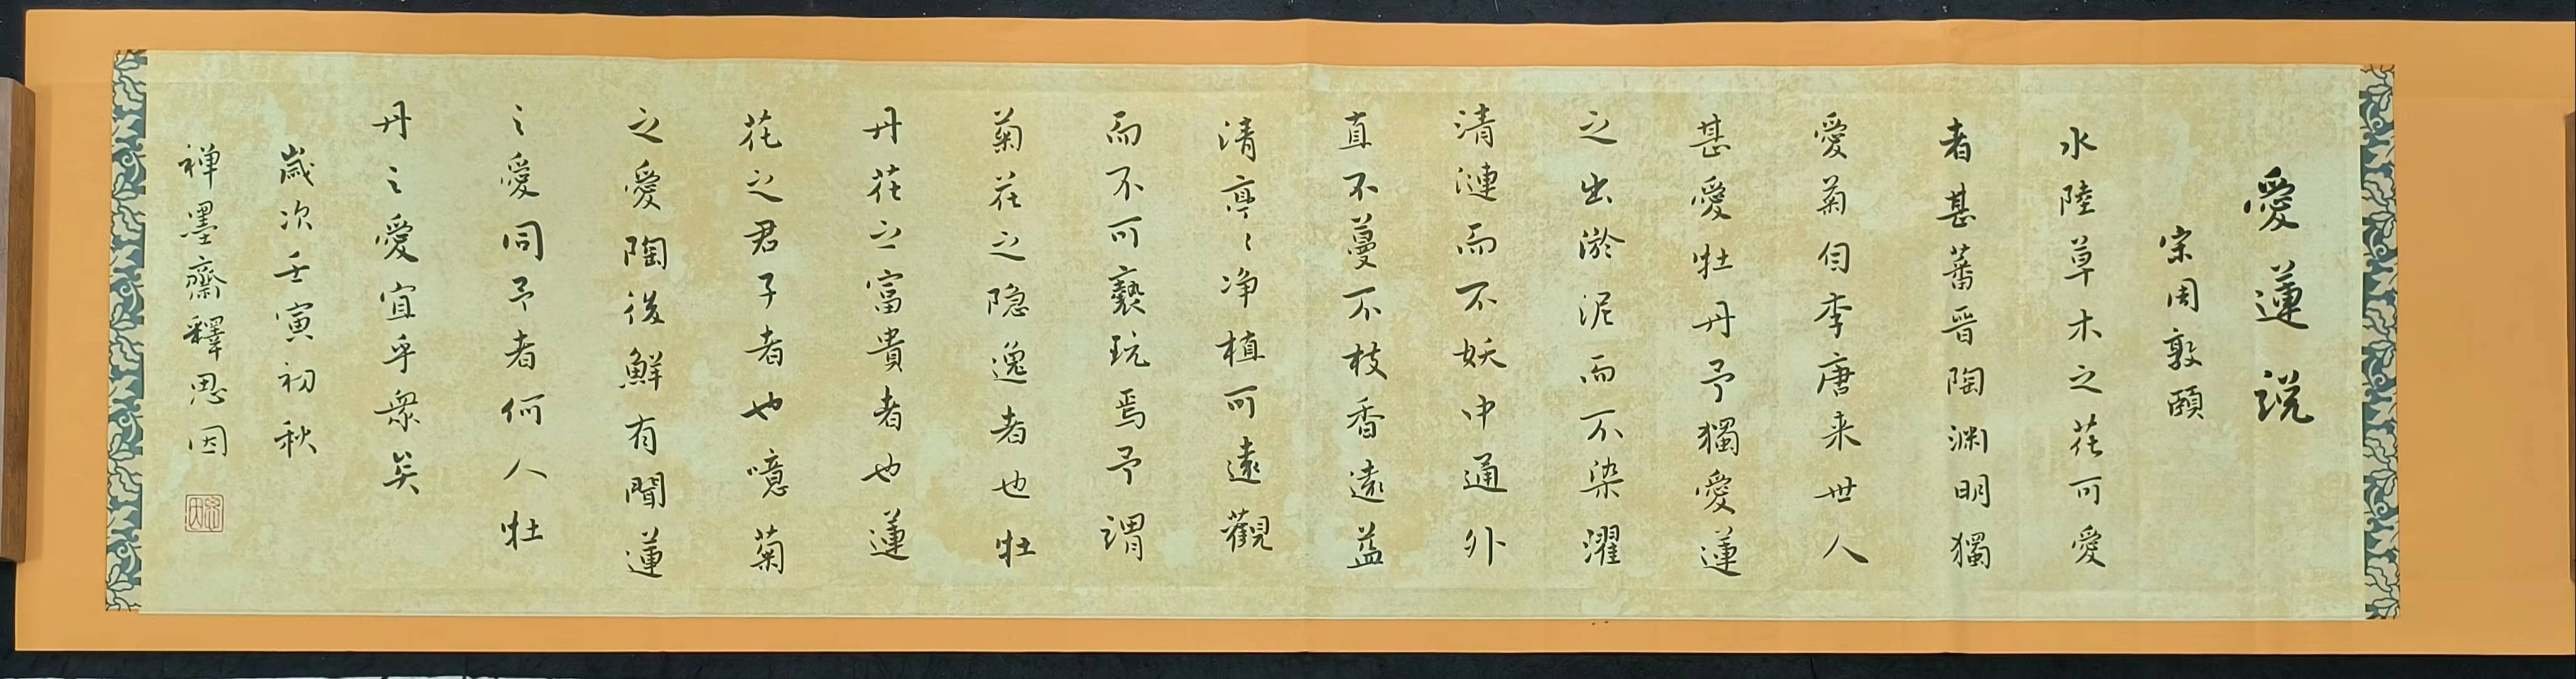 愛蓮説
宗周敦頤
水陸草木之花可愛
者甚蕃晉陶渊明獨
愛菊自李唐来世人
甚愛牡丹予獨愛蓮
之出淤泥而不染濯
清漣而不妖中通外
直不蔓不枝香遠益
清亭々净植可遠觀
而不可褻玩焉予謂
菊花之隐逸者也牡
丹花之富貴者也蓮
花之君子者也噫菊
之愛陶後鮮有聞蓮
之愛同予者何人牡
丹之愛宜乎衆矣
歲次壬寅初秋
禅墨齋釋思因
思因